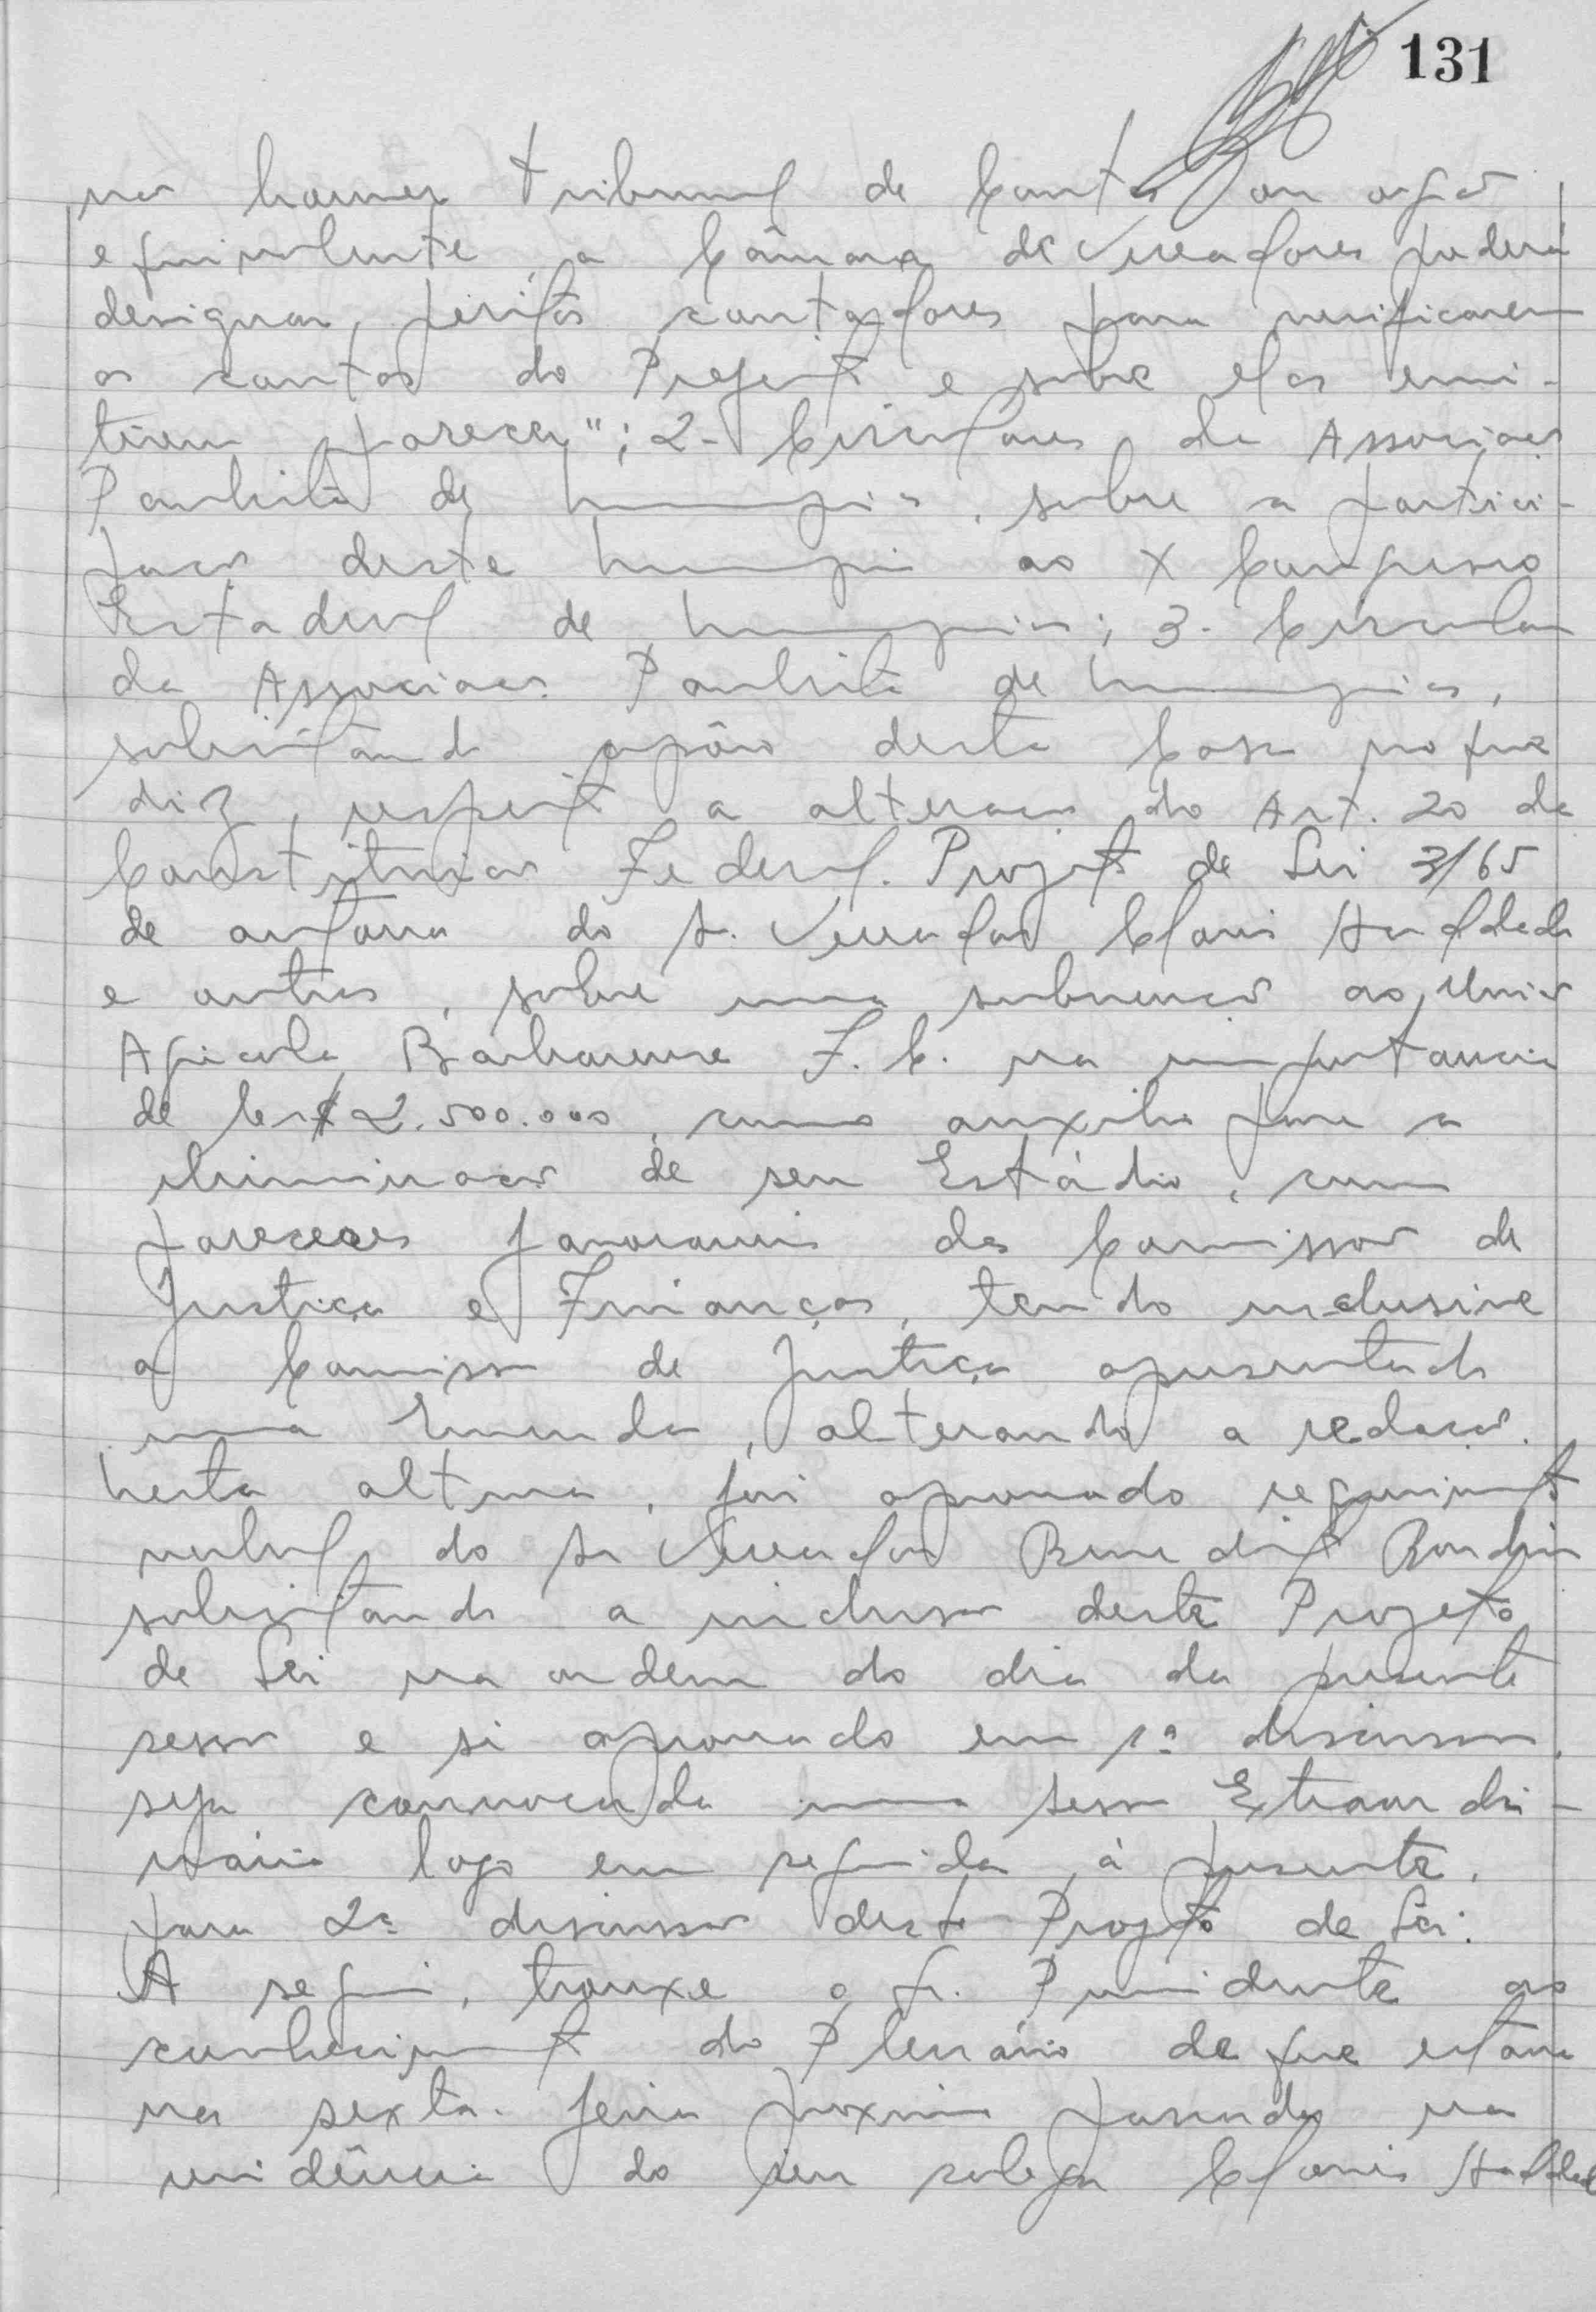 131
não houver Tribunal de Contas ou orgão
equivalente, a Câmara de Vereadores poderá
designar, peritos contadores para verificarem
as contas do Prefeito e sobre elas emi-
tirem parecer"; 2- Circulares da Associação
Paulista de Municipios, sobre a partici-
pação deste Municipio ao X Congresso
Estadual de Municipios; 3- Circular
da Associação Paulista de Municipios,
solicitando apôio desta Casa no que
diz respeito a alteração do Art. 20 da
Constituição Federal. Projeto de Lei 3/65
de autoria do Sr. Vereador Clovis Haddad
e outros, sobre uma subvenção ao União
Agricola Barbarense F.C. na importancia
de Cr$ 2.500.000, como auxilio para a
iluminação de seu Estádio, com
pareceres favoraveis da Comissão de
Justiça e Finanças, tendo inclusive
a Comissão de Justiça apresentado
uma Emenda, alterando a redação.
Nesta altura, foi aprovado requerimento
verbal do Sr Vereador Benedito
solicitando a inclusão deste Projeto
de Lei na ordem do dia da presente
sessão e si aprovado em 1ª discussão,
seja convocada uma sessão Extraordi-
nária logo em seguida à presente,
para 2ª discussão deste Projeto de Lei.
A seguir, trouxe o Sr. Presidente ao
conhecimento do Plenário de que esteve
na sexta-feira proxima passada na
residência do seu colega Clovis Haddad